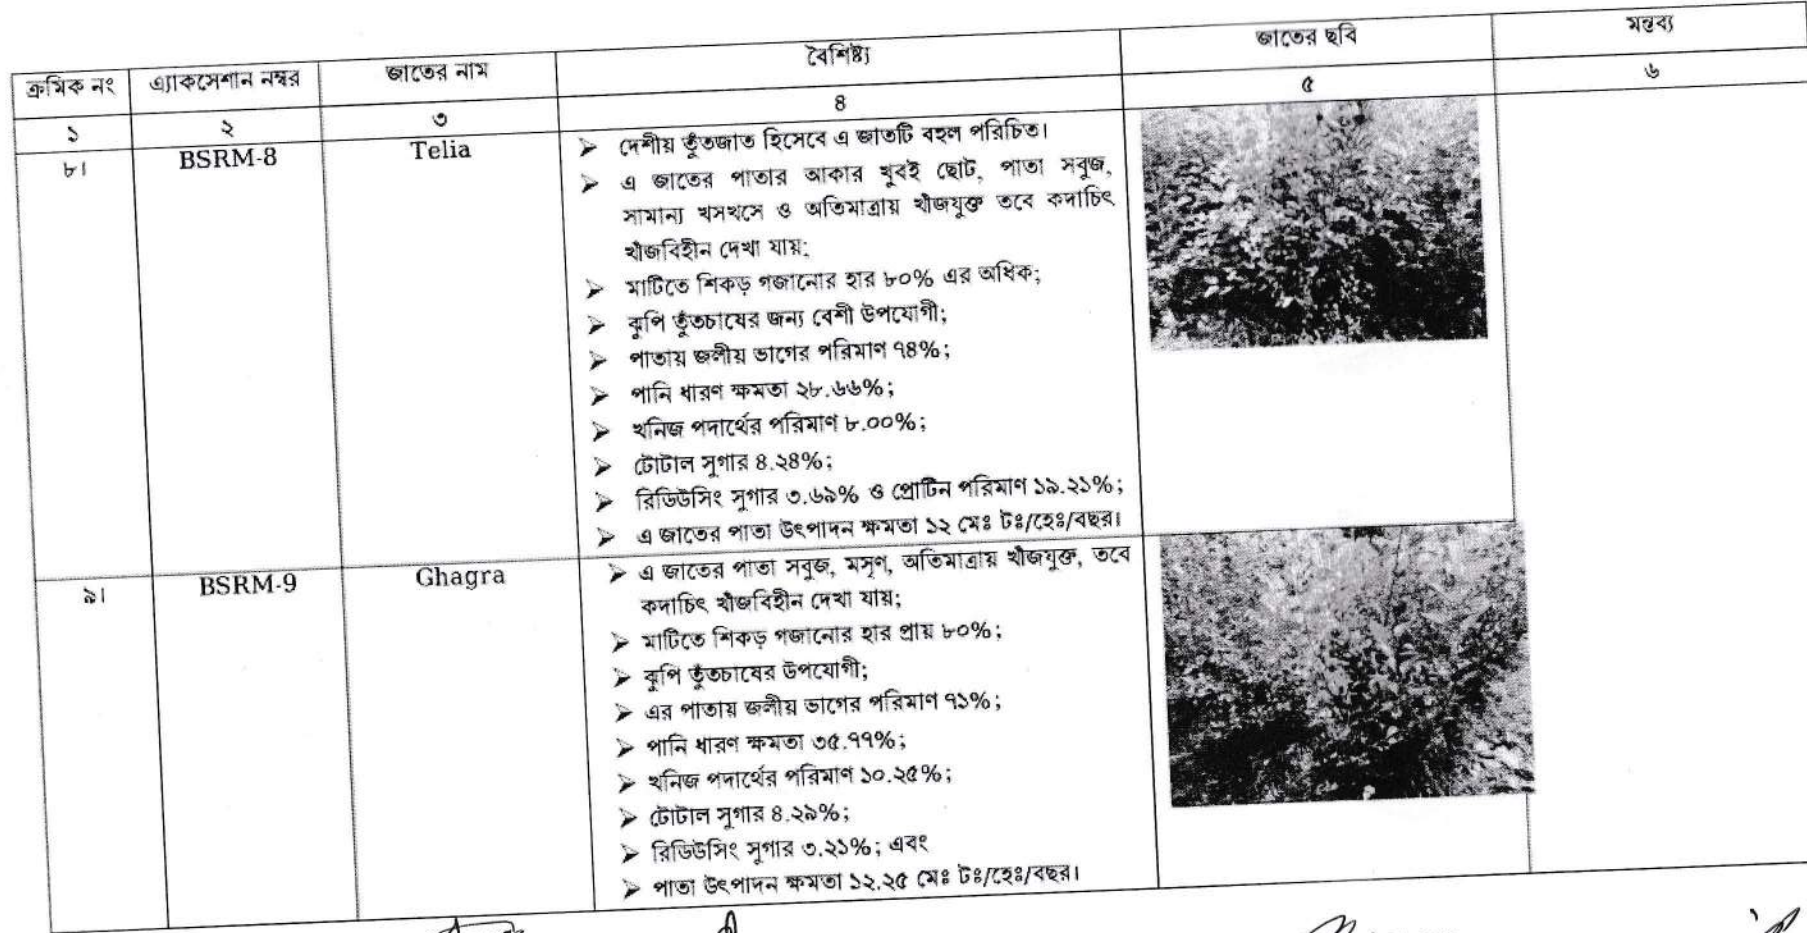 ক্রমিক নং এ্যাকসেশান নম্বর জাতের নাম বৈশিষ্ট্য জাতের ছবি মন্তব্য
১ ২ ৩ ৪ ৫ ৬
৮। BSRM-8 Telia
➢ দেশীয় তুঁতজাত হিসেবে এ জাতটি বহল পরিচিত।
➢ এ জাতের পাতার আকার খুবই ছোট, পাতা সবুজ,
সামান্য খসখসে ও অতিমাত্রায় খাঁজযুক্ত তবে কদাচিৎ
খাঁজবিহীন দেখা যায়;
➢ মাটিতে শিকড় গজানোর হার ৮০% এর অধিক;
➢ ঝুপি তুঁতচাষের জন্য বেশী উপযোগী;
➢ পাতায় জলীয় ভাগের পরিমাণ ৭৪%;
➢ পানি ধারণ ক্ষমতা ২৮.৬৬%;
➢ খনিজ পদার্থের পরিমাণ ৮.০০%;
➢ টোটাল সুগার ৪.২৪%;
➢ রিডিউসিং সুগার ৩.৬৯% ও প্রোটিন পরিমাণ ১৯.২১%;
➢ এ জাতের পাতা উৎপাদন ক্ষমতা ১২ মেঃ টঃ/হেঃ/বছর।
৯। BSRM-9 Ghagra
➢ এ জাতের পাতা সবুজ, মসৃণ, অতিমাত্রায় খাঁজযুক্ত, তবে
কদাচিৎ খাঁজবিহীন দেখা যায়;
➢ মাটিতে শিকড় গজানোর হার প্রায় ৮০%;
➢ ঝুপি তুঁতচাষের উপযোগী;
➢ এর পাতায় জলীয় ভাগের পরিমাণ ৭১%;
➢ পানি ধারণ ক্ষমতা ৩৫.৭৭%;
➢ খনিজ পদার্থের পরিমাণ ১০.২৫%;
➢ টোটাল সুগার ৪.২৯%;
➢ রিডিউসিং সুগার ৩.২১%; এবং
➢ পাতা উৎপাদন ক্ষমতা ১২.২৫ মেঃ টঃ/হেঃ/বছর।